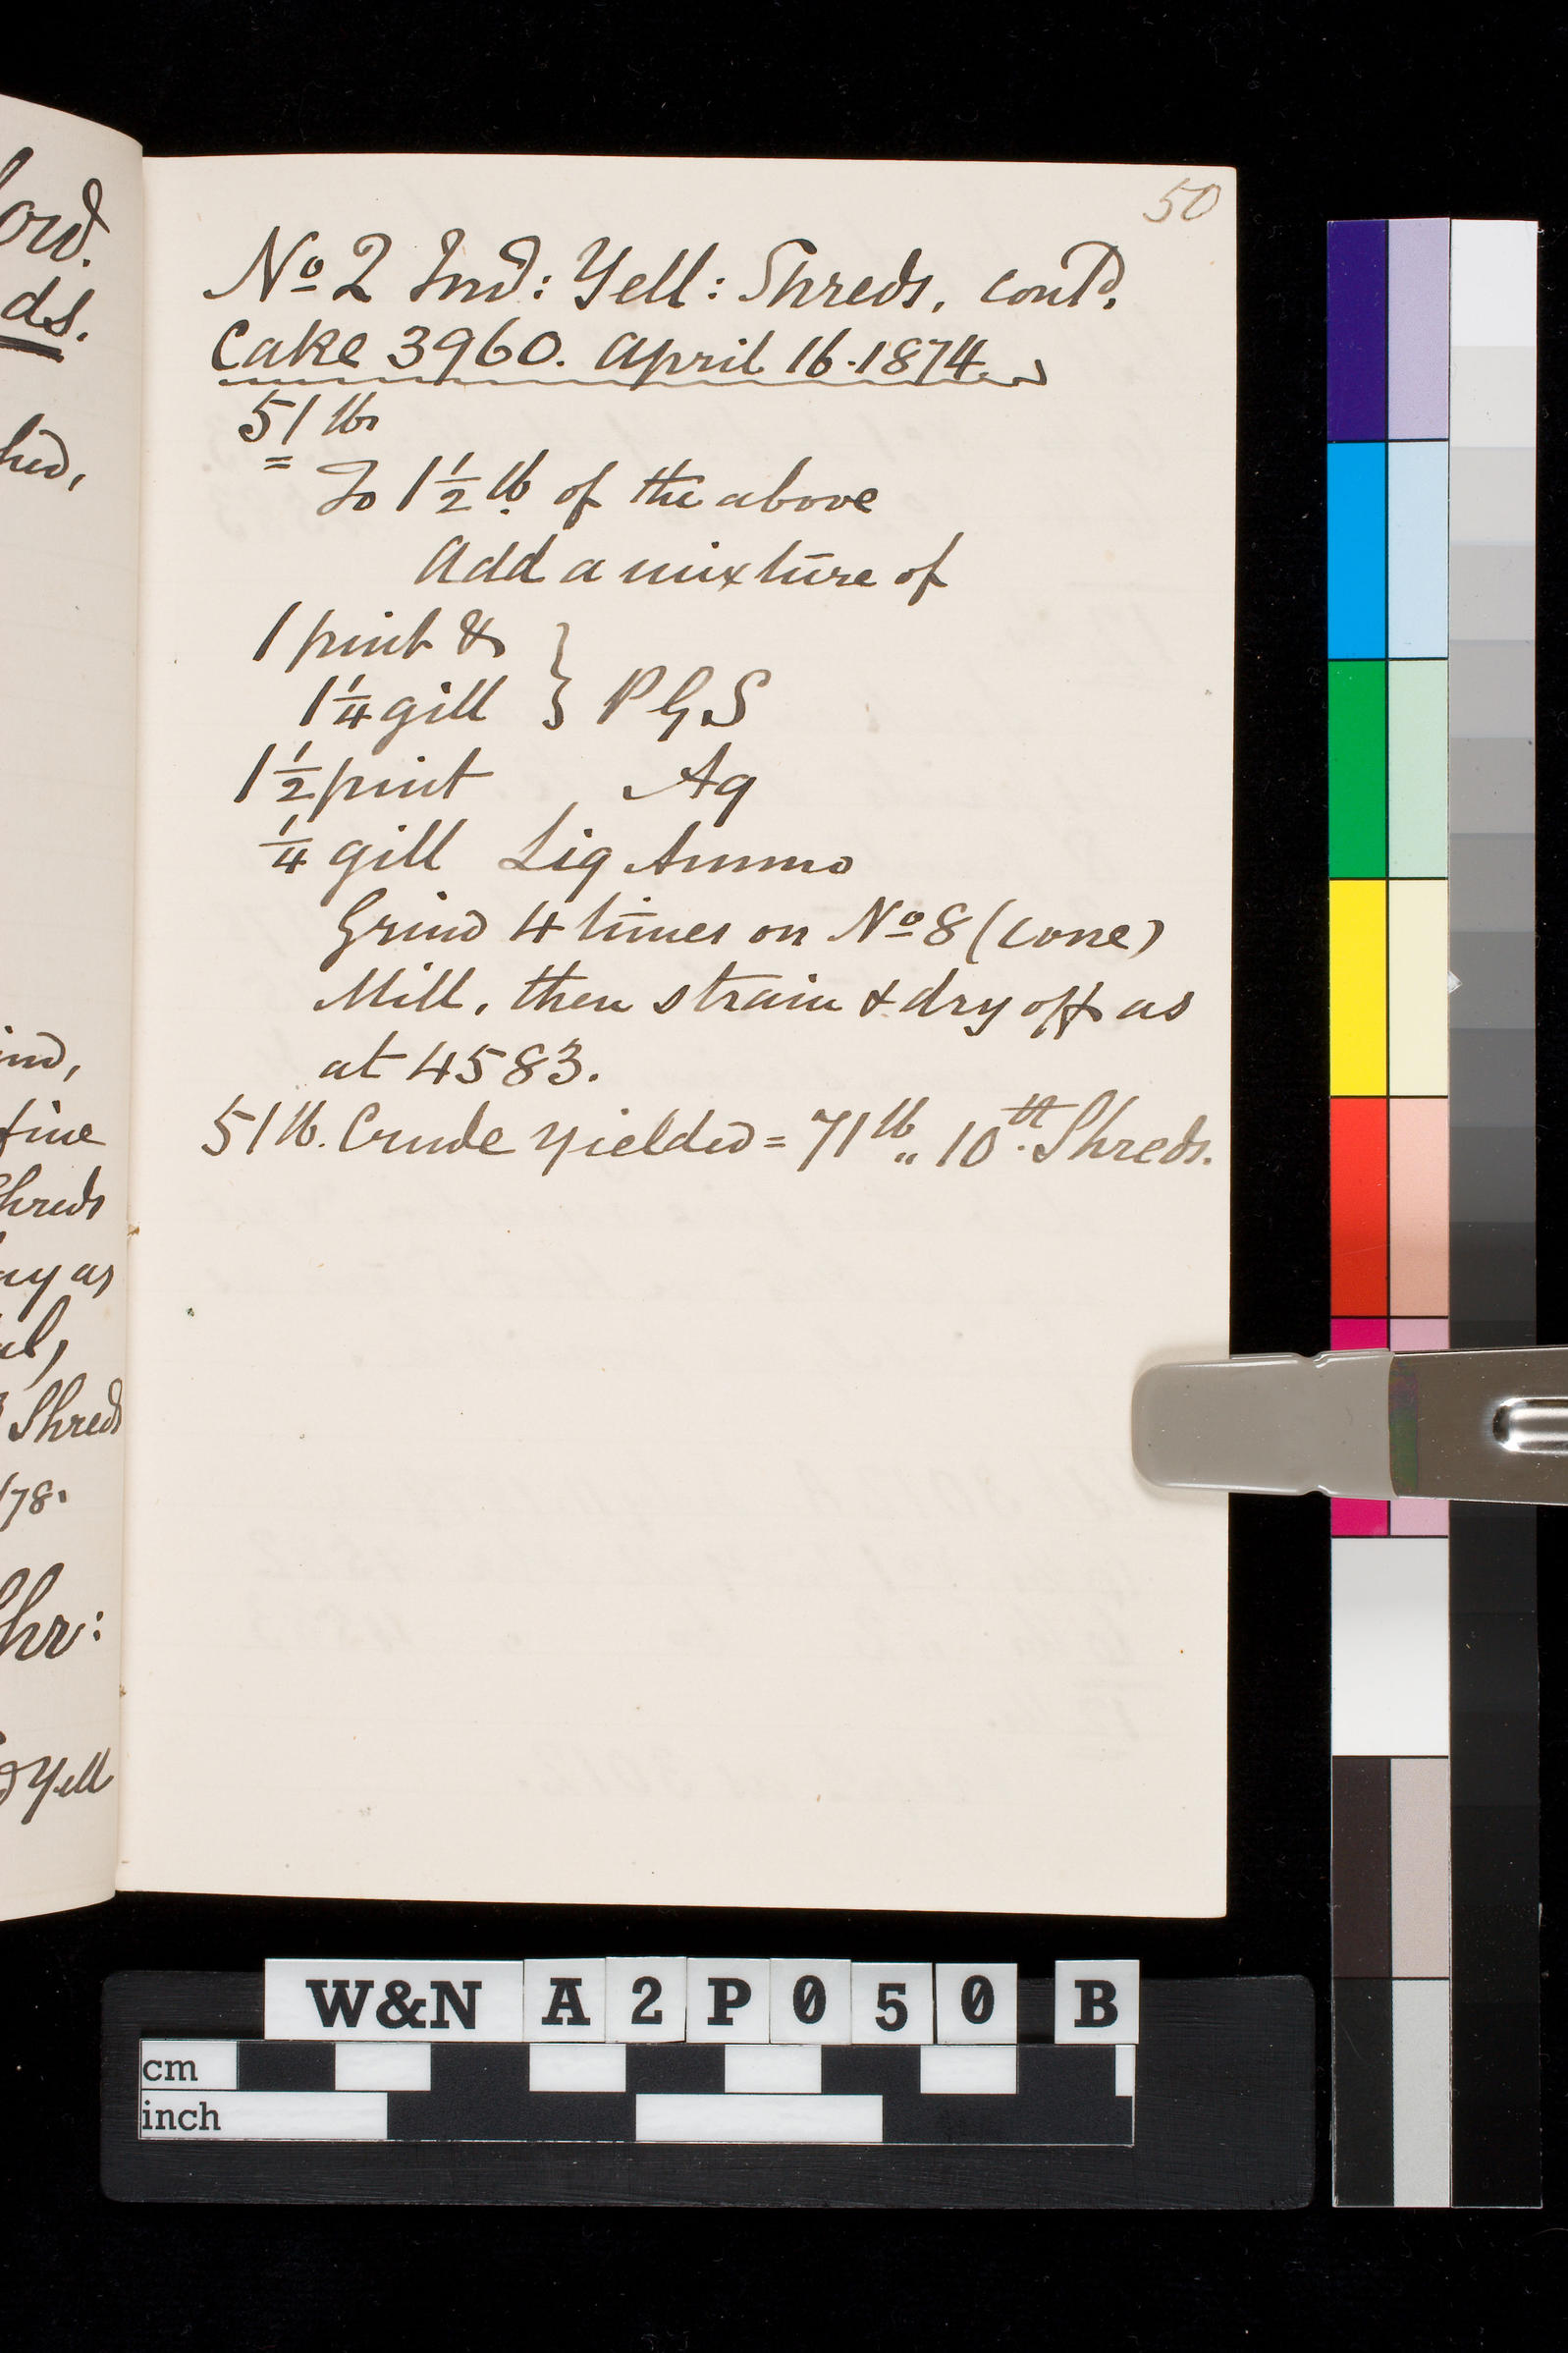 ds.
fine
Shreds
ay as
Shreds
178.
Shr:
Yell
50
No 2 Ind: Yell: Shreds, contd.
Cake 3960. April 16. 1874.
51 lb
= To 1 1/2 lb of the above
Add a mixture of
1 pint &
1 1/4 gill } P G S
1 1/2 pint Aq
1/4 gill Liq Ammo
Grind 4 times on No 8 (cone)
Mill, then strain & dry off as
at 4583.
51 lb. Crude yielded = 71 lb „ 10th. Shreds.
W&N A2P050 B
cm
inch